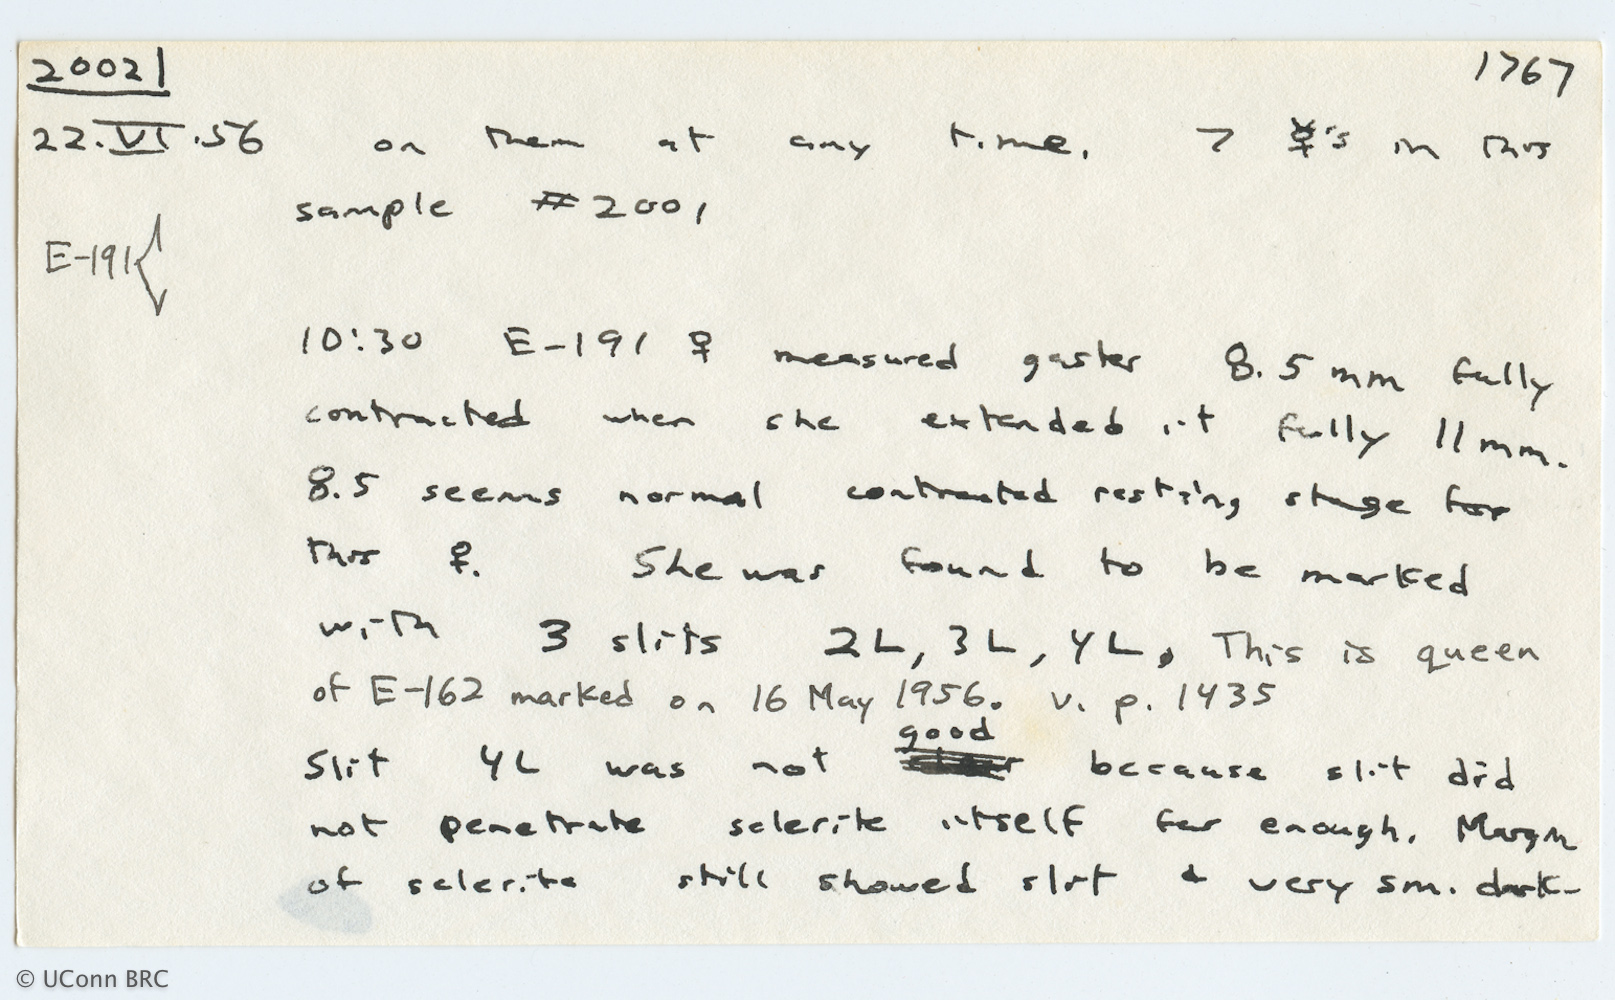 20021 1767
22.VI.56 on them at any time. 7 ☿'s in this
sample #2001
E-191
10:30 E-191 ♀ measured gaster 8.5 mm fully
contracted when she extended it fully 11 mm.
8.5 seems normal contracted resting stage for
this ♀. She was found to be marked
with 3 slits 2L, 3L, 4L. This is queen
of E-162 marked on 16 May 1956. v. p. 1435
good
Slit 4L was not because slit did
not penetrate sclerite itself far enough. Margin
of sclerite still showed slit & very sm. dark-
© UConn BRC